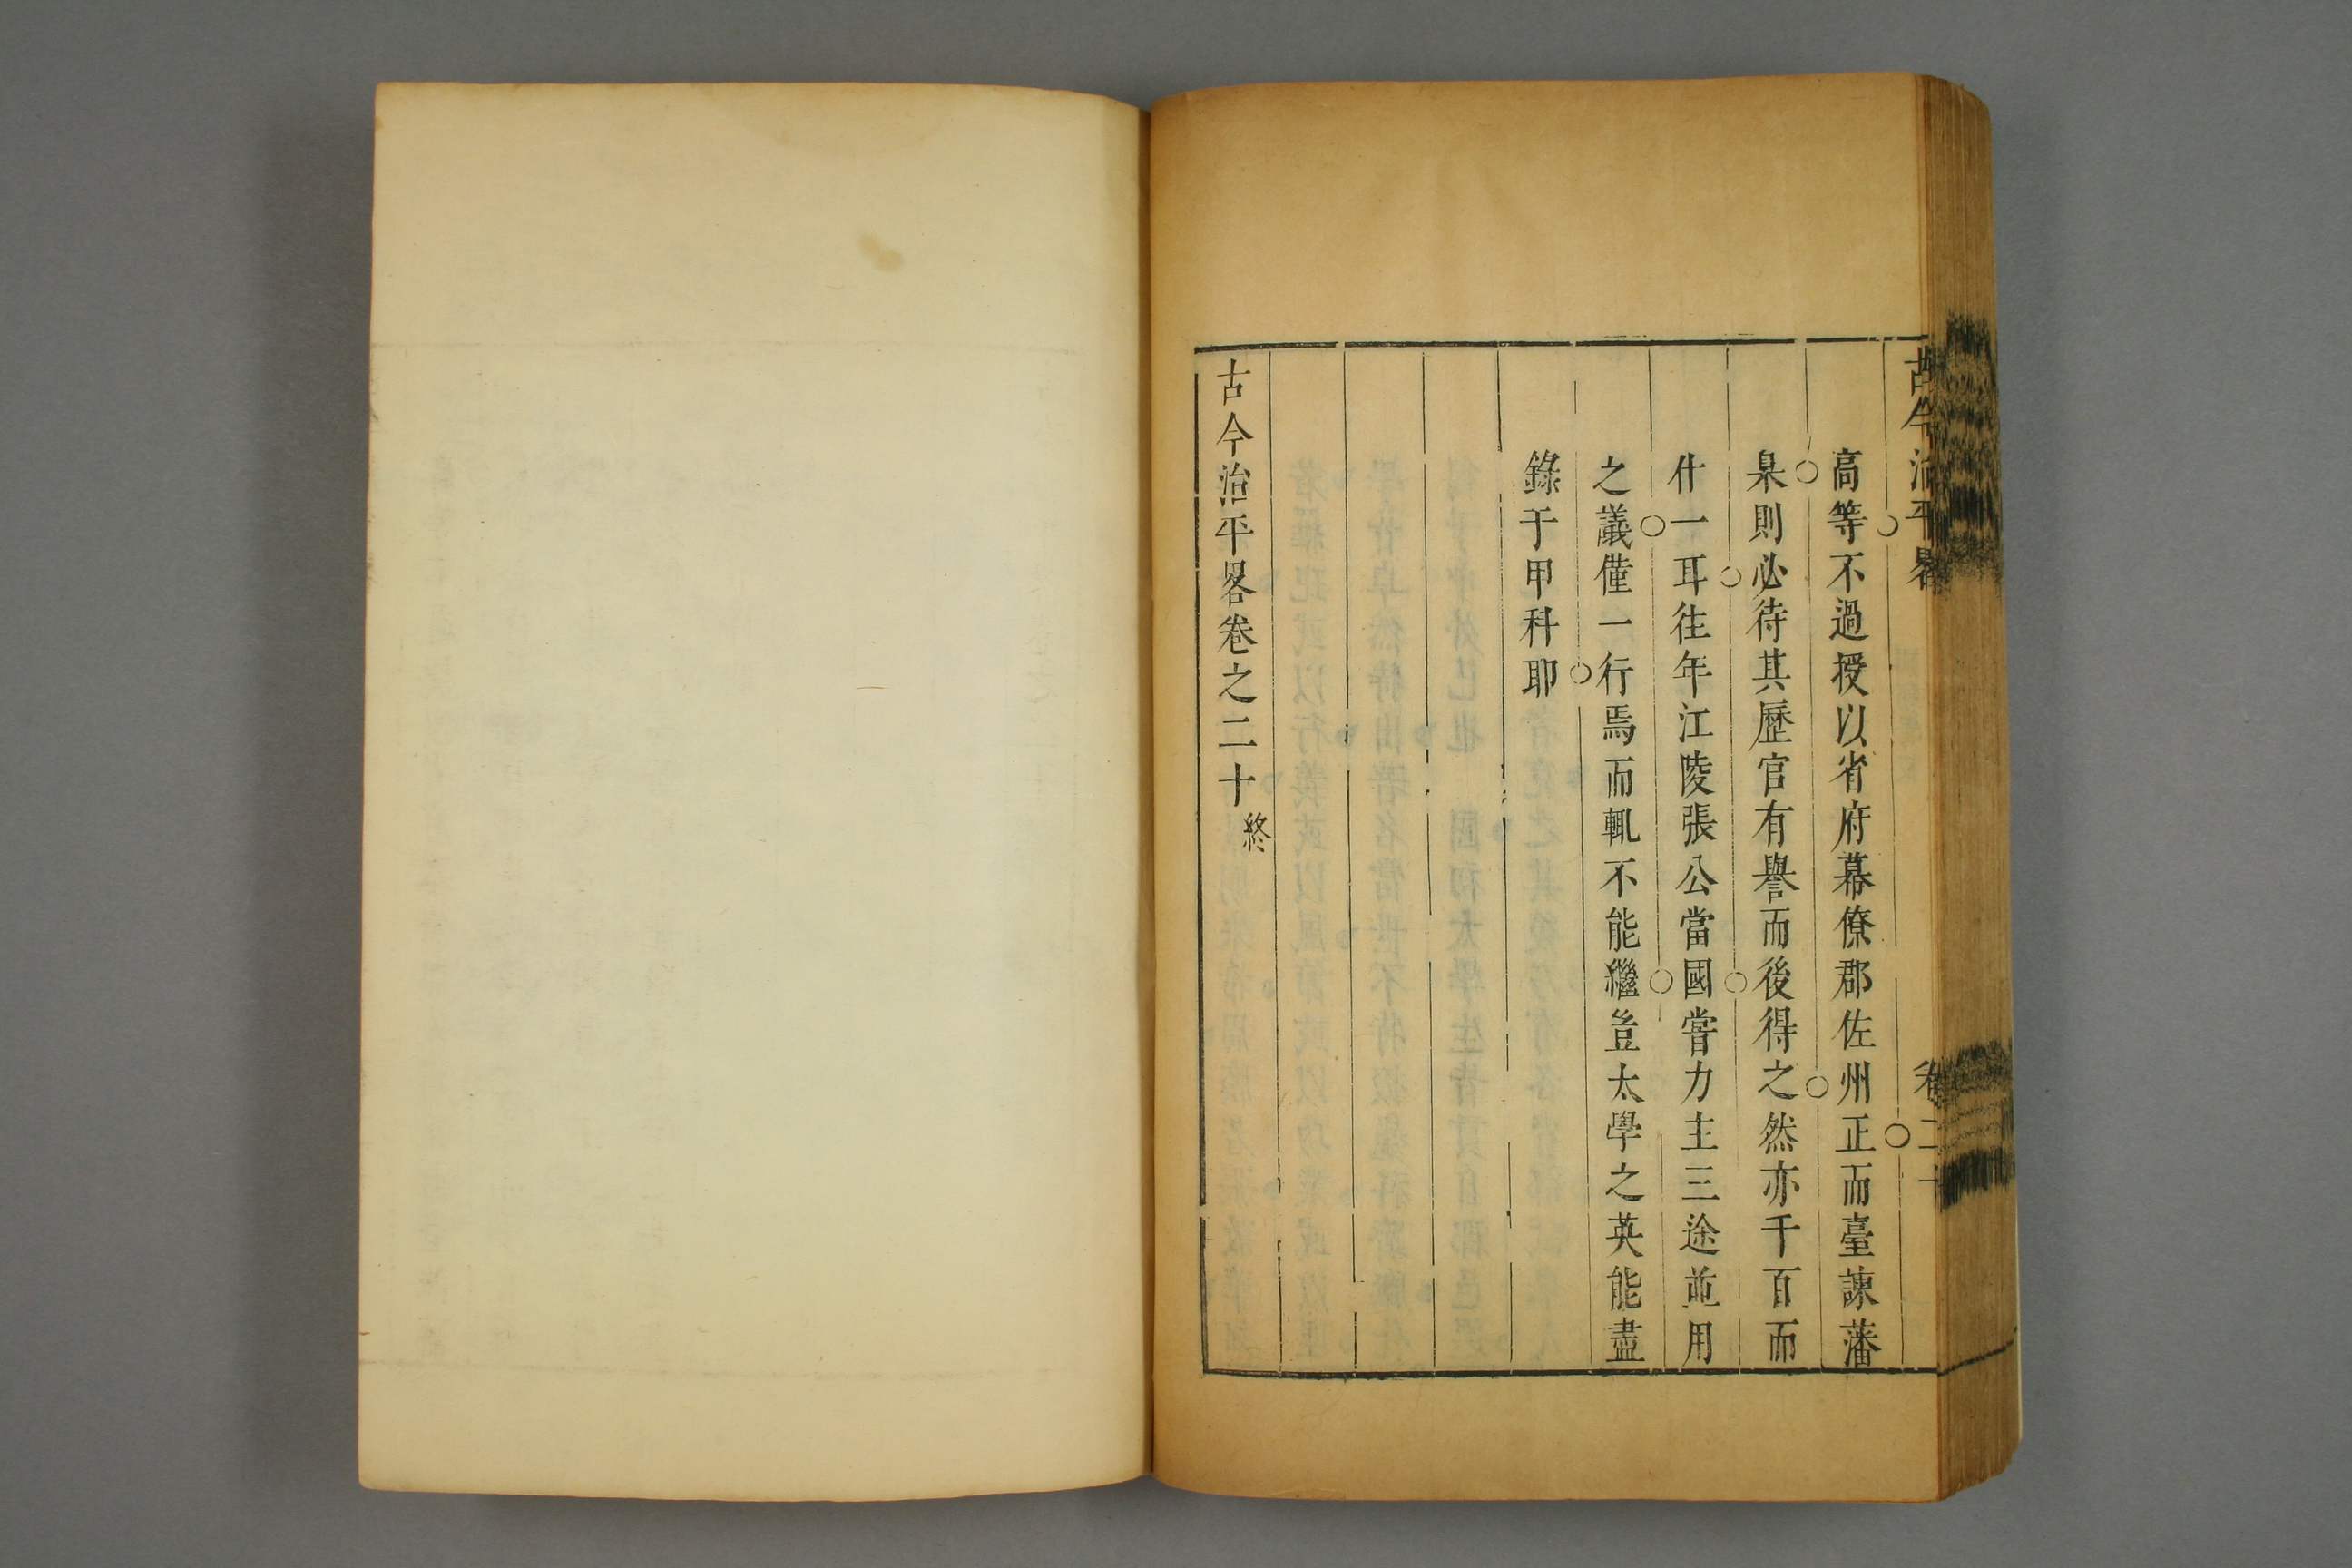 古今治平畧
卷二十
高等不過授以省府幕僚郡佐州正而臺諫藩
臬則必待其歷官有譽而後得之然亦千百而
什一耳往年江陵張公當國嘗力主三途並用
之議僅一行焉而輒不能繼豈太學之英能盡
錄于甲科耶
古今治平畧卷之二十終